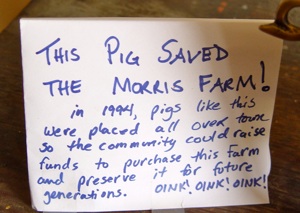 THIS PIG SAVED
THE MORRIS FARM!
in 1994, pigs like this
were placed all over town
so the community could raise
funds to purchase this farm
and preserve it for future
generations. OINK! OINK! OINK!